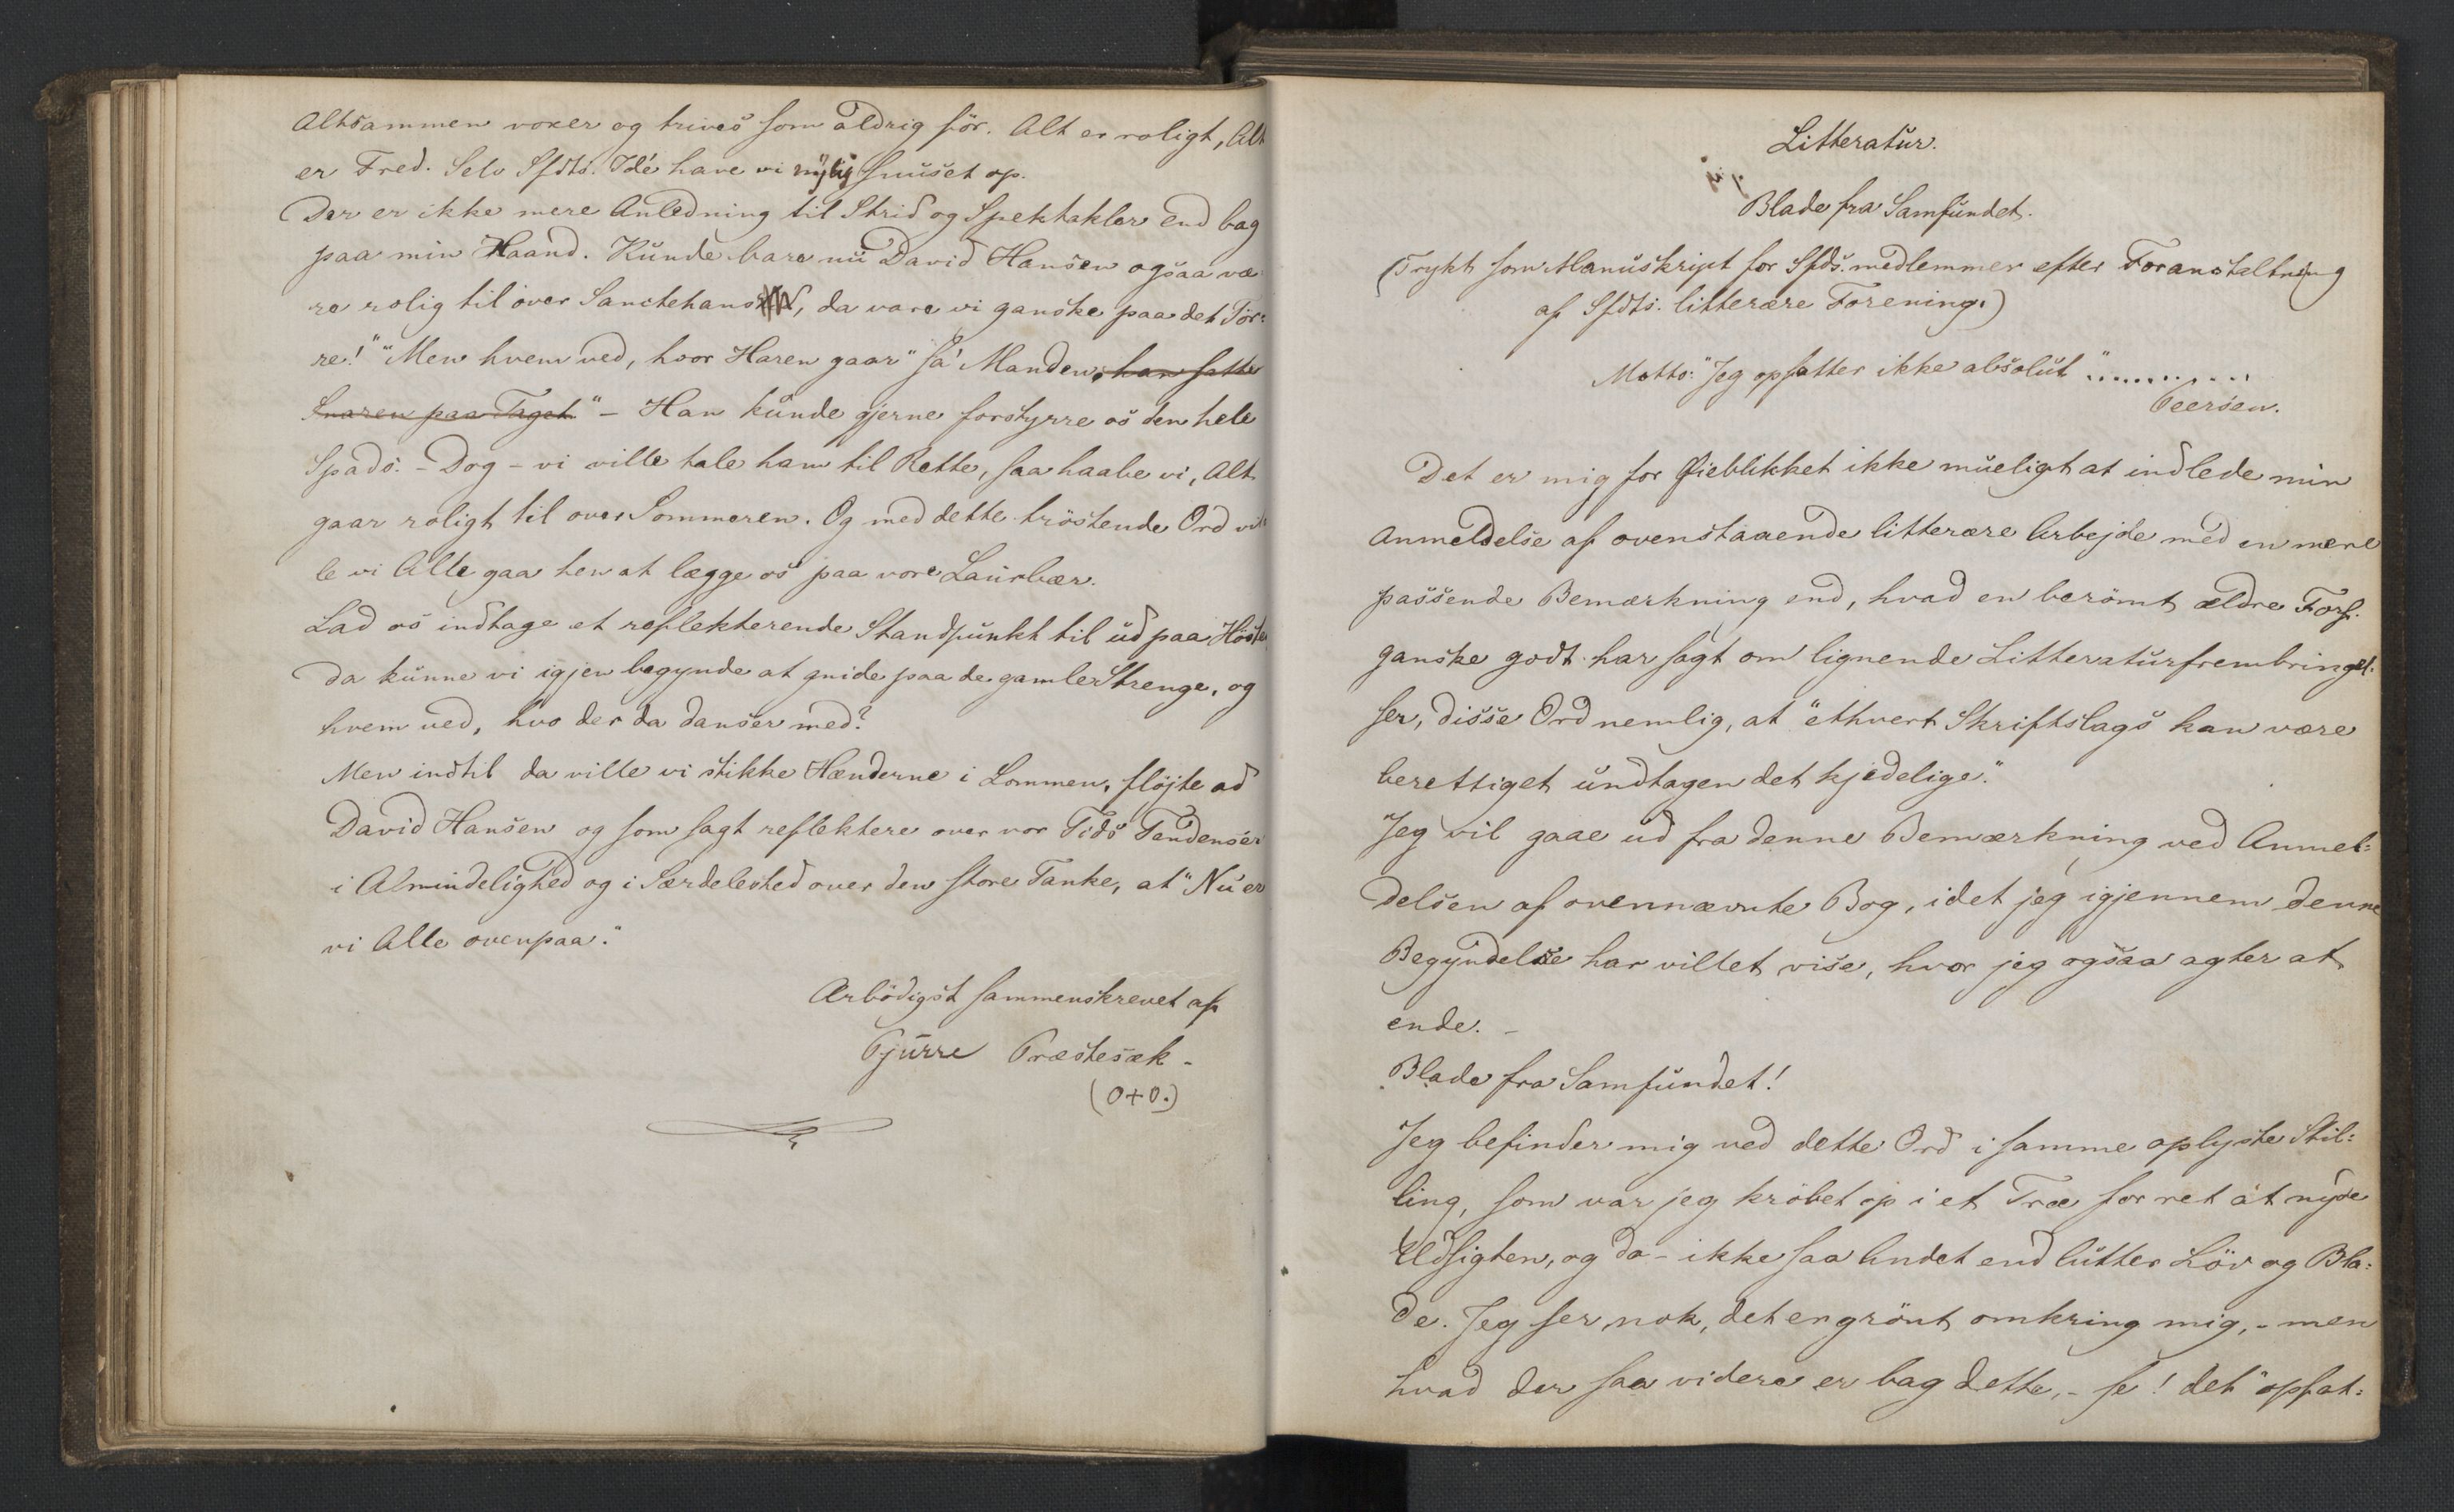 Altsammen voxer og trives som aldrig för. Alt er roligt, Alt
er Fred. Selv Sfdts. Idé have vi nylig snuset op.
Der er ikke mere Anledning til Strid og Spektakler end bag
paa min Haand. Kunde bare nu David Hansen ogsaa væ
re rolig til over Sanctehans, da vare vi ganske paa det Tör:
re!" "Men hvem ved, hvor Haren gaar" sa' Manden, han satte
Snaren paa Taget" - Han kunde gjerne forstyrre os den hele
Spads. - Dog - vi ville tale ham til Rette, saa haabe vi, Alt
gaar roligt til over Sommeren. Og med dette tröstende Ord vil
le vi Alle gaa hen at lægge os paa vore Laurbær.
Lad os indtage et reflekterende Standpunkt til ud paa Hösten
da kunne vi igjen begynde at gnide paa de gamle Strenge, og
hvem ved, hvo der da danser med?
Men indtil da ville vi stikke Hænderne i Lommen, flöjte ad
David Hansen og som sagt reflektere over vor Tids Tendenser
i Almindelighed og i Særdeleshed over den store Tanke, at "Nu er
vi Alle ovenpaa."
Ærbödigst sammenskrevet af
Pjurre Præstesæk -
(0+0.)
Litteratur.
Blade fra Samfundet.
(Trykt som Manuskript for Sfds. medlemmer efter Foranstaltning
af Sfdts. litterære Forening.)
Motto: "Jeg opfatter ikke absolut" ............
Peersen.
Det er mig for Øieblikket ikke mueligt at indlede min
Anmeldelse af ovenstaaende litterære Arbejde med en mere
passende Bemærkning end, hvad en berömt ældre Forf.
ganske godt har sagt om lignende Litteraturfrembringel:
ser, disse Ord nemlig, at "ethvert Skriftslags kan være
berettiget undtagen det kjedelige."
Jeg vil gaae ud fra denne Bemærkning ved Anmel:
delsen af ovennævnte Bog, idet jeg igjennem denne
Begyndelse har villet vise, hvor jeg ogsaa agter at
ende. -
Blade fra Samfundet!
Jeg befinder mig ved dette Ord i samme oplyste Stil:
ling, som var jeg kröbet op i et Træ for ret at nyde
Udsigten, og da - ikke saa Andet end lutter Löv og Bla:
de. Jeg ser nok, det er grönt omkring mig, - men
hvad der saa videre er bag dette, - se! det "opfat: